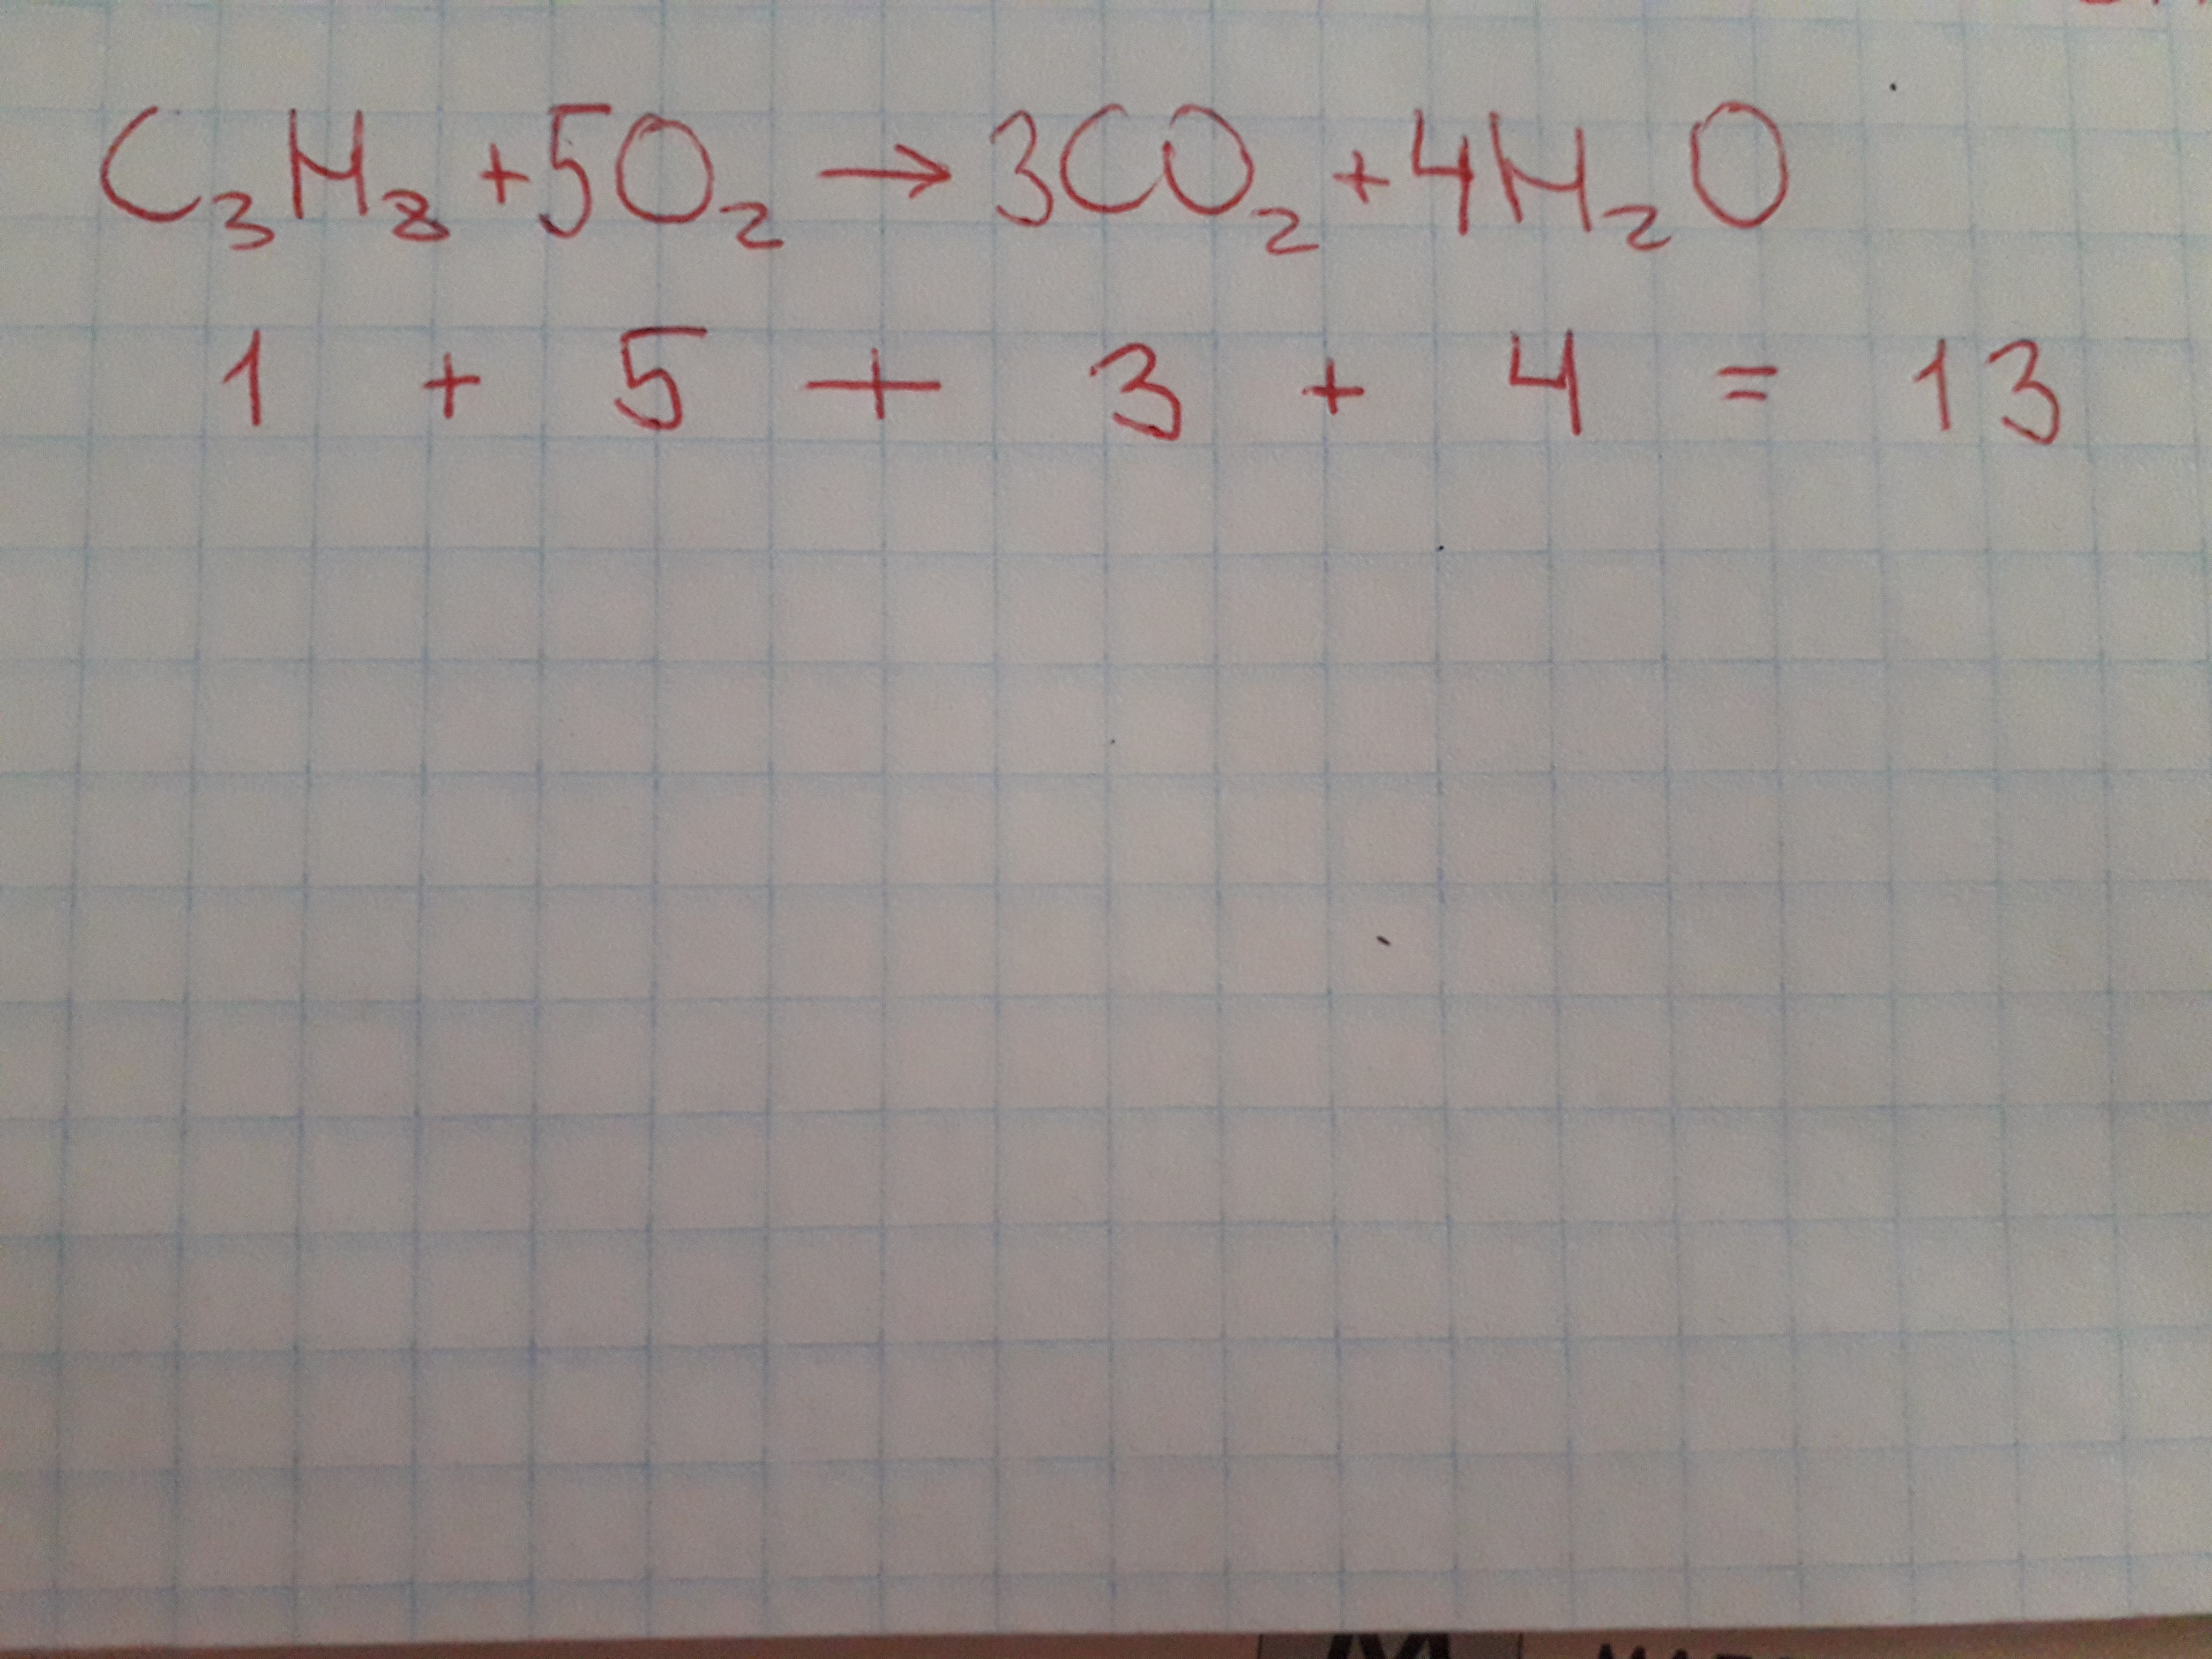 C₃H₈ + 5O₂ → 3CO₂ + 4H₂O
1 + 5 + 3 + 4 = 13